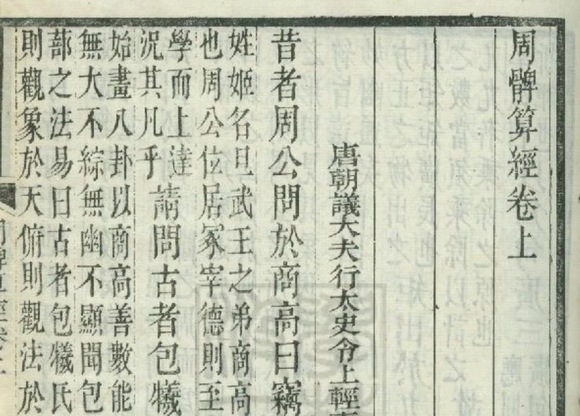 周髀算經卷上
唐朝議大夫行太史令上輕
昔者周公問於商高曰竊
姓姬名旦武王之弟商高
也周公位居冢宰德則至
學而上達
況其凡乎
請問古者包犧
始畫八卦以商高善數能
無大不綜無幽不顯聞包
部之法易曰古者包犧氏
則觀象於天俯則觀法於